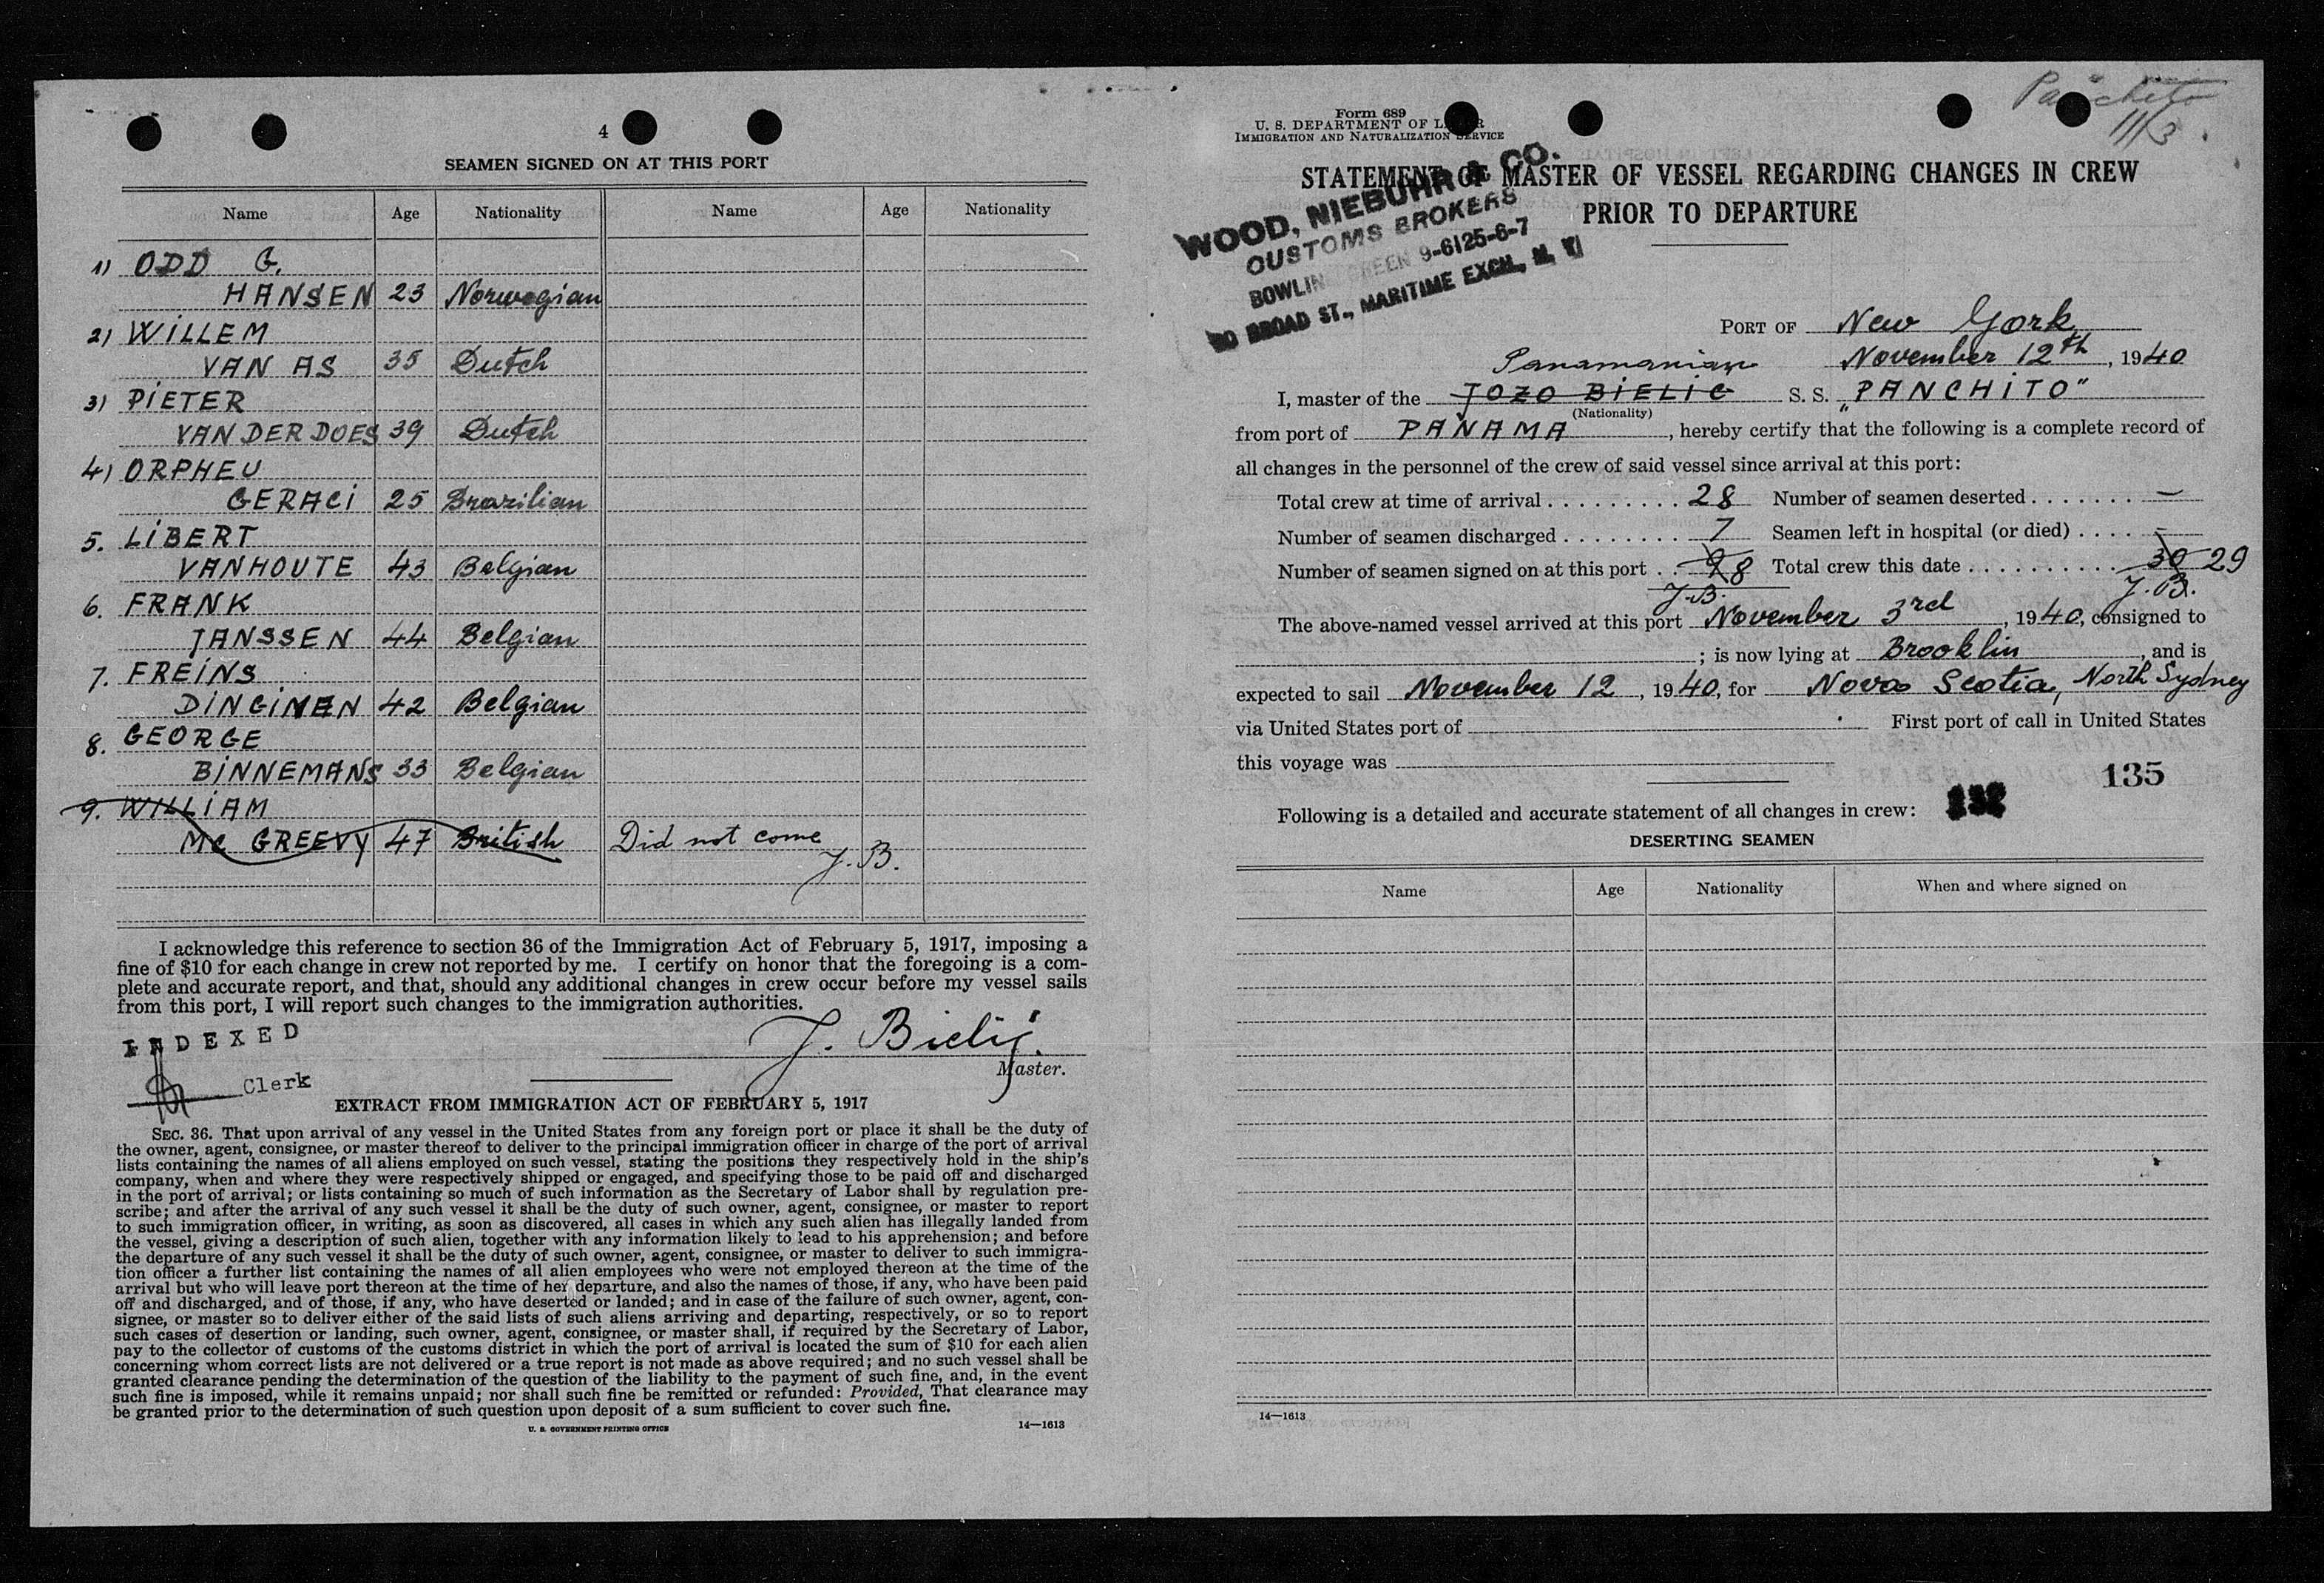 4
SEAMEN SIGNED ON AT THIS PORT
Name Age Nationality Name Age Nationality
1) ODD G.
HANSEN 23 Norwegian
2) WILLEM
VAN AS 35 Dutch
3) PIETER
VAN DER DOES 39 Dutch
4) ORPHEU
GERACI 25 Brazilian
5. LIBERT
VANHOUTE 43 Belgian
6. FRANK
JANSSEN 44 Belgian
7. FREINS
DINGINEN 42 Belgian
8. GEORGE
BINNEMANS 33 Belgian
9. WILLIAM
Mc GREEVY 47 British Did not come
J. B.
I acknowledge this reference to section 36 of the Immigration Act of February 5, 1917, imposing a
fine of $10 for each change in crew not reported by me. I certify on honor that the foregoing is a com-
plete and accurate report, and that, should any additional changes in crew occur before my vessel sails
from this port, I will report such changes to the immigration authorities.
INDEXED
J. Bielić
Master.
Clerk
EXTRACT FROM IMMIGRATION ACT OF FEBRUARY 5, 1917
SEC. 36. That upon arrival of any vessel in the United States from any foreign port or place it shall be the duty of
the owner, agent, consignee, or master thereof to deliver to the principal immigration officer in charge of the port of arrival
lists containing the names of all aliens employed on such vessel, stating the positions they respectively hold in the ship's
company, when and where they were respectively shipped or engaged, and specifying those to be paid off and discharged
in the port of arrival; or lists containing so much of such information as the Secretary of Labor shall by regulation pre-
scribe; and after the arrival of any such vessel it shall be the duty of such owner, agent, consignee, or master to report
to such immigration officer, in writing, as soon as discovered, all cases in which any such alien has illegally landed from
the vessel, giving a description of such alien, together with any information likely to lead to his apprehension; and before
the departure of any such vessel it shall be the duty of such owner, agent, consignee, or master to deliver to such immigra-
tion officer a further list containing the names of all alien employees who were not employed thereon at the time of the
arrival but who will leave port thereon at the time of her departure, and also the names of those, if any, who have been paid
off and discharged, and of those, if any, who have deserted or landed; and in case of the failure of such owner, agent, con-
signee, or master so to deliver either of the said lists of such aliens arriving and departing, respectively, or so to report
such cases of desertion or landing, such owner, agent, consignee, or master shall, if required by the Secretary of Labor,
pay to the collector of customs of the customs district in which the port of arrival is located the sum of $10 for each alien
concerning whom correct lists are not delivered or a true report is not made as above required; and no such vessel shall be
granted clearance pending the determination of the question of the liability to the payment of such fine, and, in the event
such fine is imposed, while it remains unpaid; nor shall such fine be remitted or refunded: Provided, That clearance may
be granted prior to the determination of such question upon deposit of a sum sufficient to cover such fine.
U. S. GOVERNMENT PRINTING OFFICE 14—1613
Panchito
11/3
Form 689
U. S. DEPARTMENT OF LABOR
IMMIGRATION AND NATURALIZATION SERVICE
STATEMENT OF MASTER OF VESSEL REGARDING CHANGES IN CREW
PRIOR TO DEPARTURE
WOOD, NIEBUHR & CO.
CUSTOMS BROKERS
BOWLING GREEN 9-6125-6-7
BROAD ST., MARITIME EXCH., N. Y.
PORT OF New York
Panamanian November 12th, 1940
I, master of the JOZO BIELIC S. S. "PANCHITO"
(Nationality)
from port of PANAMA, hereby certify that the following is a complete record of
all changes in the personnel of the crew of said vessel since arrival at this port:
Total crew at time of arrival . . . . . . . . . 28 Number of seamen deserted . . . . . . . —
Number of seamen discharged . . . . . . . . 7 Seamen left in hospital (or died) . . . . -
Number of seamen signed on at this port . . 9 8 Total crew this date . . . . . . . . . . . 30 29
J. B. J. B.
The above-named vessel arrived at this port November 3rd, 1940, consigned to
; is now lying at Brooklin, and is
expected to sail November 12, 1940, for Nova Scotia, North Sydney
via United States port of . First port of call in United States
this voyage was
135
Following is a detailed and accurate statement of all changes in crew: 132
DESERTING SEAMEN
Name Age Nationality When and where signed on
14—1613